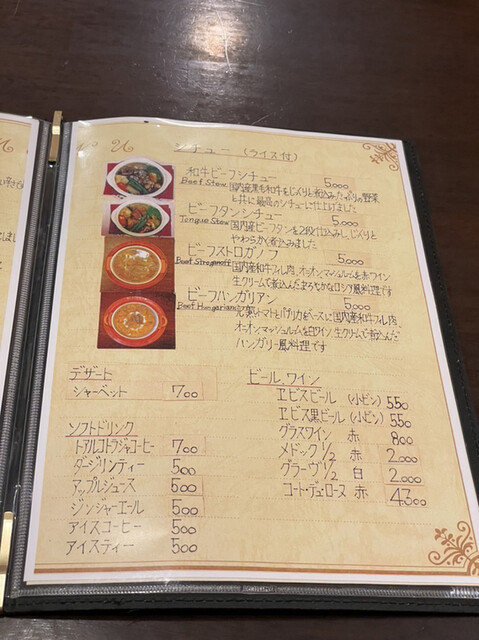 シチュー (ライス付)
和牛ビーフシチュー 5,000
Beef Stew 国内産黒毛和牛をじっくりと煮込みたっぷりの野菜
と共に最高のシチューに仕上げました
ビーフタンシチュー 5,000
Tongue Stew 国内産ビーフタンを2段仕込みし、じっくりと
やわらかく煮込みました
ビーフストロガノフ 5,000
Beef Stroganoff 国内産和牛フィレ肉、オニオン、マッシュルームを赤ワイン
生クリームで煮込んだまろやかなロシア風料理です
ビーフハンガリアン 5,000
Beef Hungarian 完熟トマトとパプリカをベースに国内産和牛フィレ肉、
オニオン、マッシュルームを白ワイン 生クリームで煮込んだ
ハンガリー風料理です
デザート
シャーベット 700
ソフトドリンク
トアルコトラジャコーヒー 700
ダージリンティー 500
アップルジュース 500
ジンジャーエール 500
アイスコーヒー 500
アイスティー 500
ビール、ワイン
ヱビスビール (小ビン) 550
ヱビス黒ビール (小ビン) 550
グラスワイン 赤 800
メドック 1/2 赤 2,000
グラーヴ 1/2 白 2,000
コート・デュ・ローヌ 赤 4,300